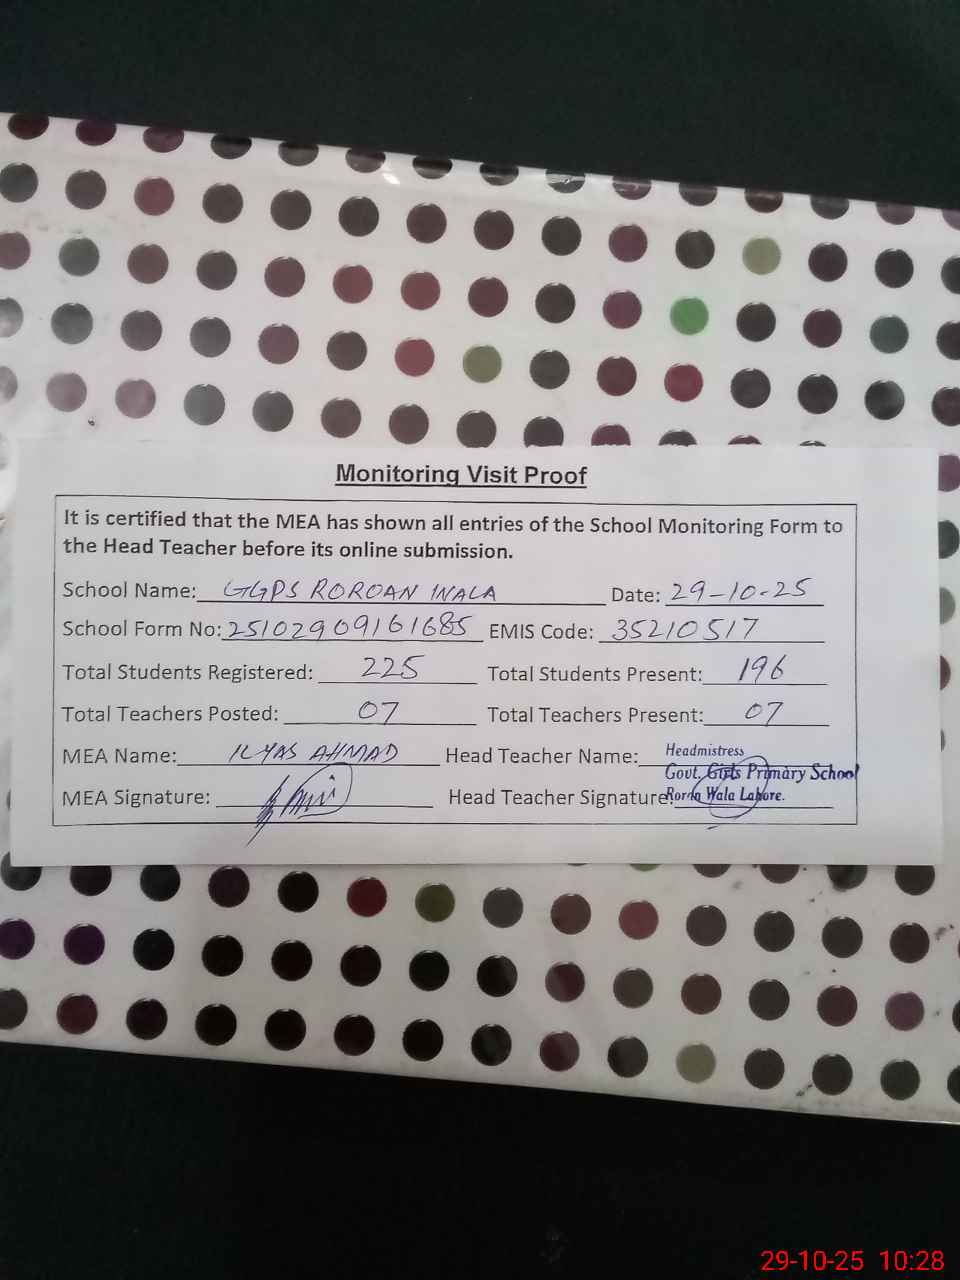 Monitoring Visit Proof
It is certified that the MEA has shown all entries of the School Monitoring Form to
the Head Teacher before its online submission.
School Name: GGPS ROROAN WALA Date: 29-10-25
School Form No: 25102909161685 EMIS Code: 35210517
Total Students Registered: 225 Total Students Present: 196
Total Teachers Posted: 07 Total Teachers Present: 07
MEA Name: ILYAS AHMAD Head Teacher Name: Headmistress
Govt. Girls Primary School
MEA Signature: Head Teacher Signature: Roran Wala Lahore.
29-10-25 10:28